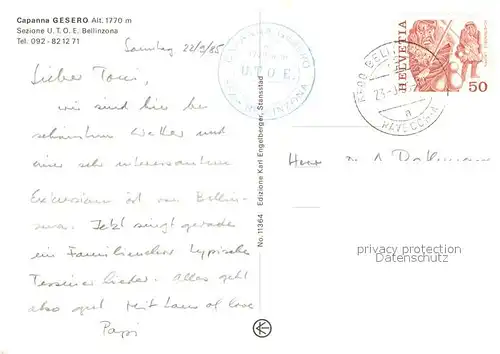 Capanna GESERO Alt. 1770 m
Sezione U. T. O. E. Bellinzona
Tel. 092 - 82 12 71
Sonntag 22/9/85
Lieber Toni,
wir sind hier bei
schönstem Wetter und
einer sehr interessanten
Exkursion ob von Bellin-
zona. Jetzt singt gerade
ein Familienchor typische
Tessiner Lieder. Alles geht
also gut. Mit tans of love
Papi
CAPANNA GESERO
U.T.O.E.
BELLINZONA
No. 11364 Edizione Karl Engelberger, Stansstad
HELVETIA
50
6500 BELLINZONA
23
a
RAVECCHIA
Herr
privacy protection
Datenschutz